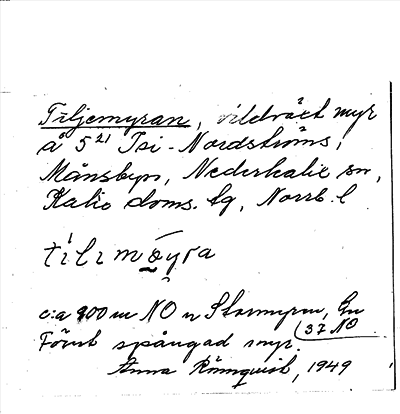 Tiljemyran, vildväxt myr
å 5²¹ Isi-Nordströms,
Månsbyn, Nederkalix sn,
Kalix doms. tg, Norrb. l
tílimǫyra
c:a 900 m NO n Stormyren, En
37 NO
Förut spångad myr.
Anna Rönnqvist, 1949